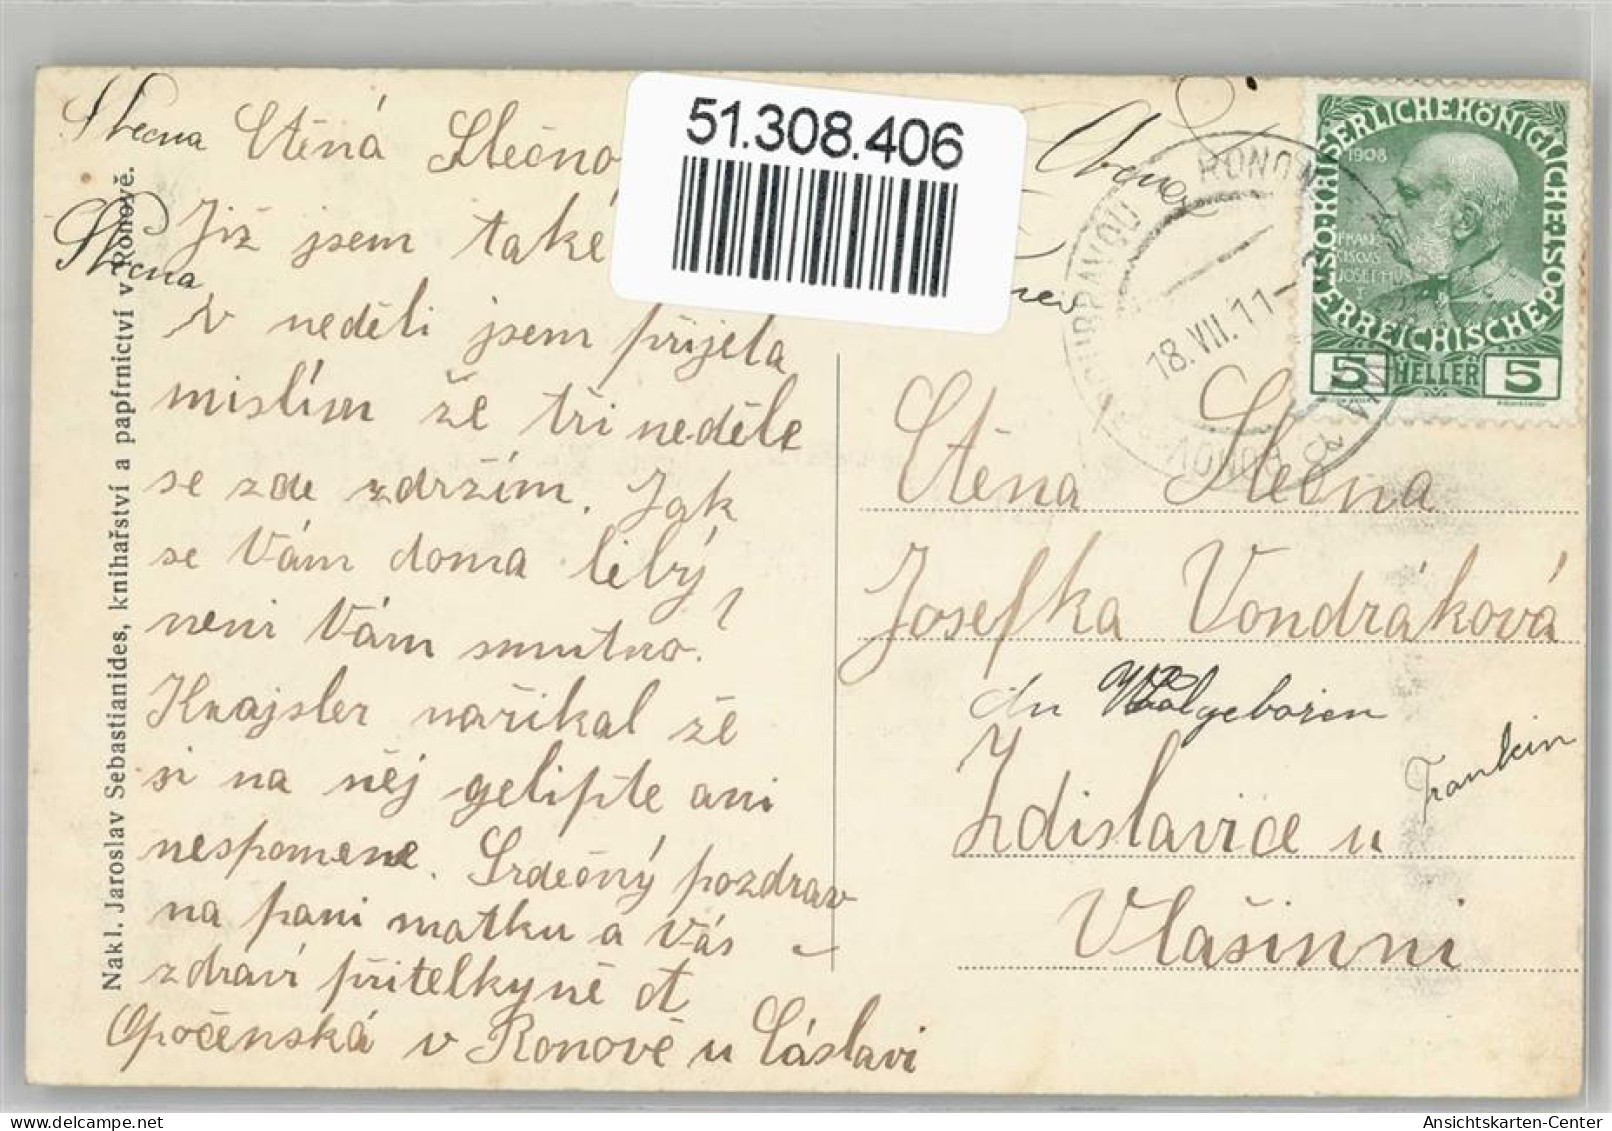 Slecna
Slecna
Ctěná Slečno
Již jsem také
V neděli jsem přijela
mislím že tři neděle
se zde zdržím. Jak
se Vám doma libý,
neni Vám smutno?
Knajsler nařikal žě
si na něj gelipte ani
nespomene. Srdečný pozdrav
na pani matku a Vás
zdravi přitelkyně A
Opočenská v Ronově u Cáslavi
Nakl. Jaroslav Sebastianides, knihařství a papírnictví v Ronově.
51.308.406
RONOW
18.VII.11
DOUBRAVOU
KAISERLICHEKÖNIGLICHE
ÖSTERREICHISCHE
1908
FRAN
CISCVS
IOSEPHVS
5 HELLER 5
Ctěna Slečna
Josefka Vondráková
An Wolgeboren
Zdislavice u
Frankin
Vlašinni
Ansichtskarten-Center